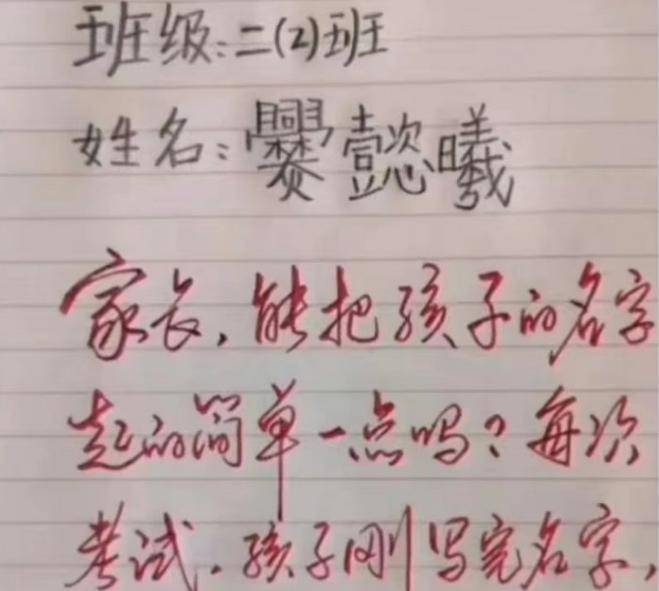 班级:二(2)班
姓名:爨懿曦
家长,能把孩子的名字
起的简单一点吗?每次
考试.孩子刚写完名字,